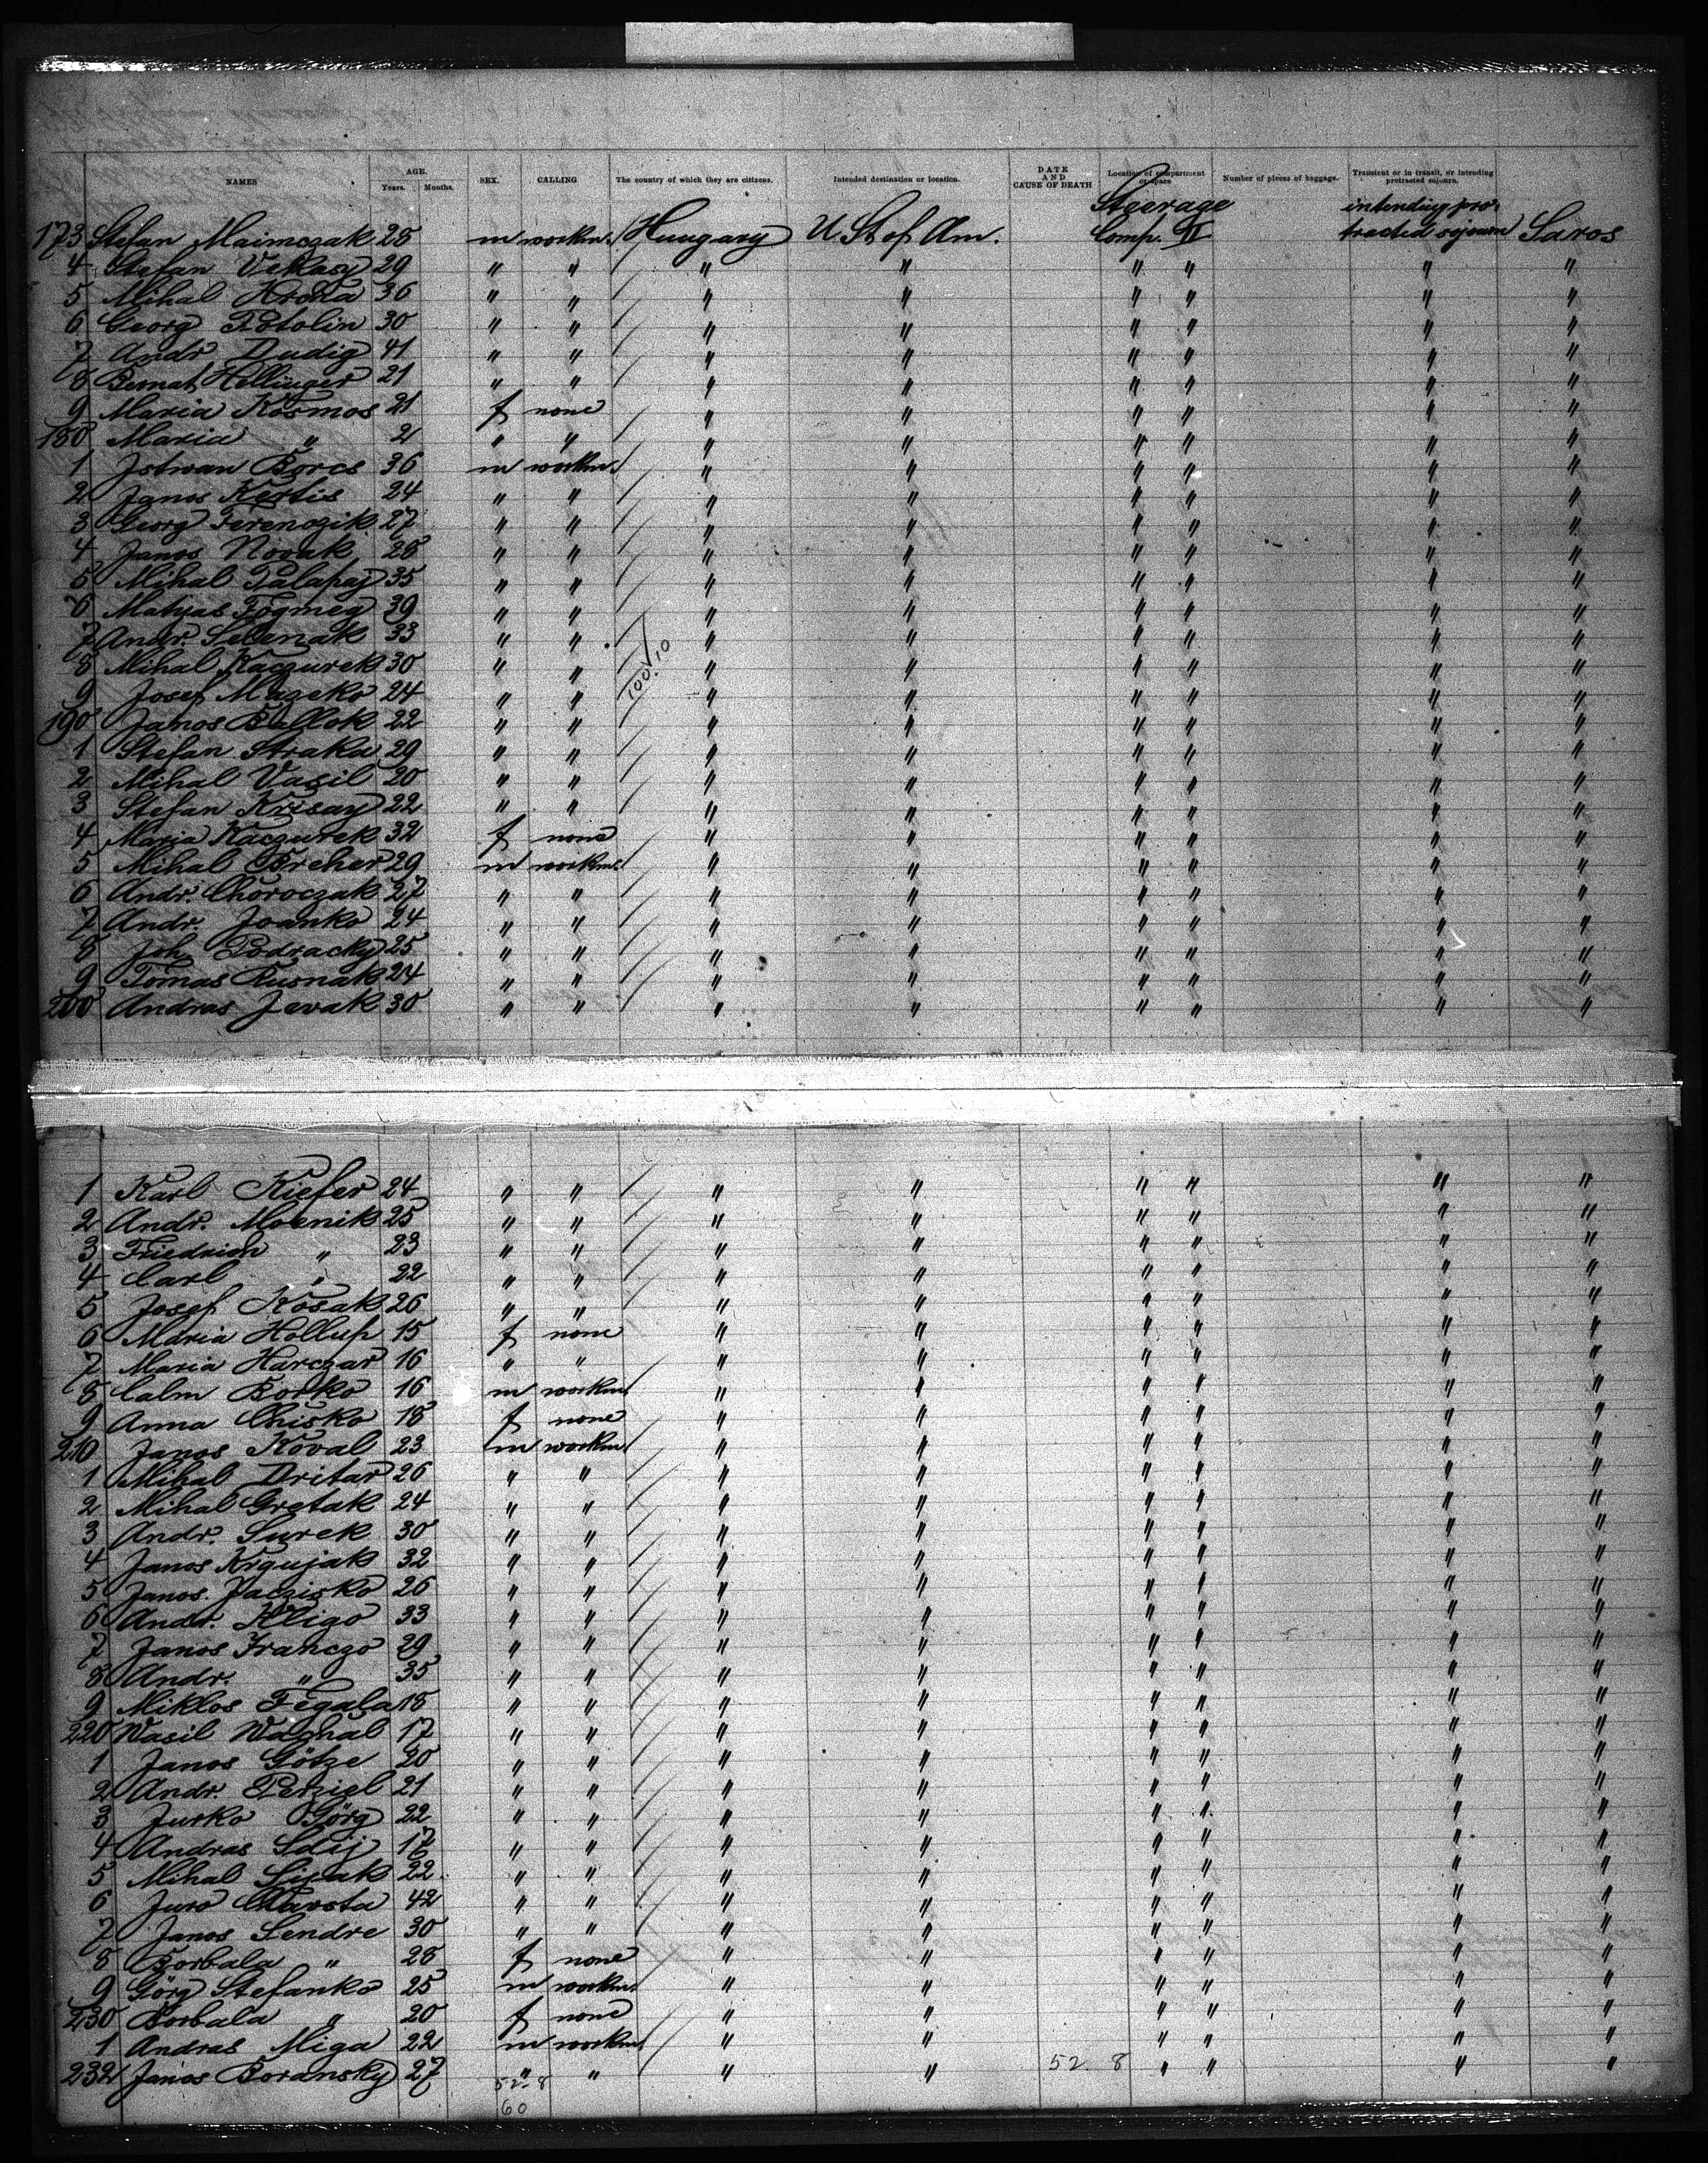 NAMES AGE. Years. Months. SEX. CALLING The country of which they are citizens. Intended destination or location. DATE AND CAUSE OF DEATH Location of compartment or space Number of pieces of baggage. Transient or in transit, or intending protracted sojourn.
173 Stefan Maimczak 28 m workm. Hungary U St of Am. Steerage Comp. II intending protracted sojourn Saros
4 Stefan Vekasy 29 " " " " " " " "
5 Mihal Hrona 36 " " " " " " " "
6 Georg Potolin 30 " " " " " " " "
7 Andr. Dudig 41 " " " " " " " "
8 Bernat Hellinger 21 " " " " " " " "
9 Maria Kosmos 21 f none " " " " " "
180 Maria " 2 " " " " " " " "
1 Istwan Borcs 36 m workm. " " " " " "
2 Janos Kertis 24 " " " " " " " "
3 Georg Ferenczik 27 " " " " " " " "
4 Janos Novak 28 " " " " " " " "
5 Mihal Palapaj 35 " " " " " " " "
6 Matyas Fogmeg 39 " " " " " " " "
7 Andr. Selenak 33 " " " " " " " "
8 Mihal Kaczurek 30 " " " " " " " "
9 Josef Mazeko 24 " " 100.10 " " " " " "
190 Janos Ballok 22 " " " " " " " "
1 Stefan Straka 29 " " " " " " " "
2 Mihal Vasil 20 " " " " " " " "
3 Stefan Krisay 22 " " " " " " " "
4 Maria Kaczurek 32 f none " " " " " "
5 Mihal Breher 29 m workm. " " " " " "
6 Andr. Choroczak 27 " " " " " " " "
7 Andr. Joanko 24 " " " " " " " "
8 Joh. Podracky 25 " " " " " " " "
9 Tomas Rusnak 24 " " " " " " " "
200 Andras Jevak 30 " " " " " " " "
1 Karl Kiefer 24 " " " " " " " "
2 Andr. Molnik 25 " " " " " " " "
3 Friedrich " 23 " " " " " " " "
4 Carl " 22 " " " " " " " "
5 Josef Kosak 26 " " " " " " " "
6 Maria Hollup 15 f none " " " " " "
7 Maria Harczar 16 " " " " " " " "
8 Calm Borko 16 m workm " " " " " "
9 Anna Chisko 18 f none " " " " " "
210 Janos Koval 23 m workm " " " " " "
1 Mihal Dritar 26 " " " " " " " "
2 Mihal Gretak 24 " " " " " " " "
3 Andr. Surek 30 " " " " " " " "
4 Janos Krgujak 32 " " " " " " " "
5 Janos Jaczisko 26 " " " " " " " "
6 Andr. Kligo 33 " " " " " " " "
7 Janos Franczo 29 " " " " " " " "
8 Andr. " 35 " " " " " " " "
9 Miklos Fegala 18 " " " " " " " "
220 Wasil Waghal 17 " " " " " " " "
1 Janos Götze 20 " " " " " " " "
2 Andr. Perziel 21 " " " " " " " "
3 Jurko Görg 22 " " " " " " " "
4 Andras Sdij 17 " " " " " " " "
5 Mihal Sisak 22 " " " " " " " "
6 Juro Charsta 42 " " " " " " " "
7 Janos Lendre 30 " " " " " " " "
8 Borbala " 28 f none " " " " " "
9 Görg Stefanko 25 m workm " " " " " "
230 Borbala " 20 f none " " " " " "
1 Andras Miga 22 m workm " " " " " "
232 Janos Boransky 27 " " " " 52 8 " " " "
52-8
60